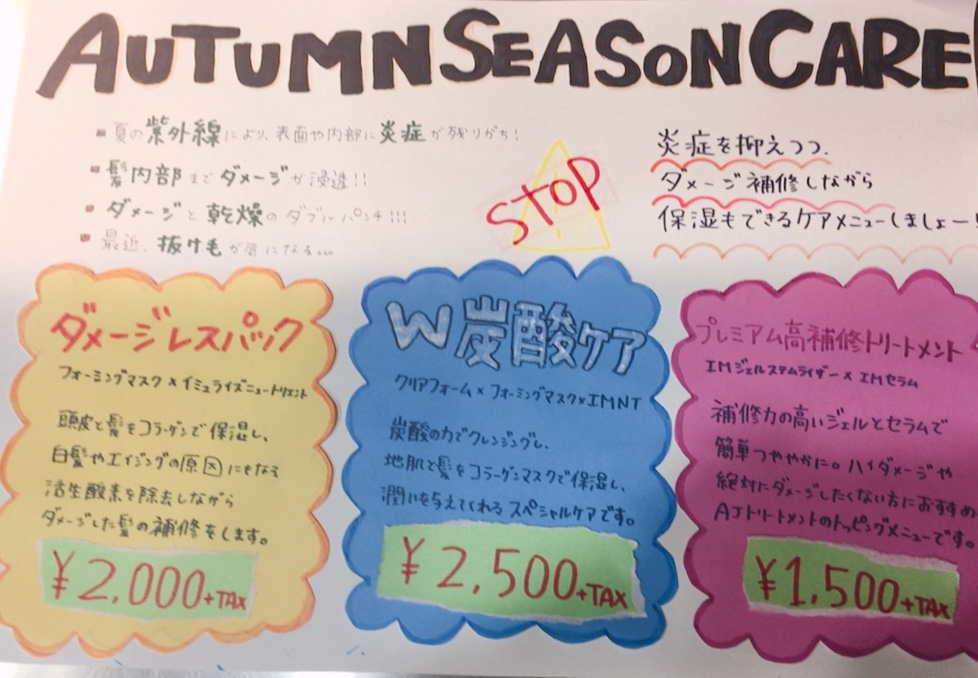 AUTUMN SEASON CARE
夏の紫外線により、表面や内部に炎症が残りがち!
髪内部までダメージが浸透!!
ダメージと乾燥のダブルパンチ!!!
最近、抜け毛が気になる...
STOP
炎症を抑えつつ、
ダメージ補修しながら
保湿もできるケアメニューしましょー!
ダメージレスパック
フォーミングマスク×イミュライズニュートリエント
頭皮と髪をコラーゲンで保湿し、
白髪やエイジングの原因にもなる
活性酸素を除去しながら
ダメージした髪の補修をします。
¥2,000+TAX
W炭酸ケア
クリアフォーム×フォーミングマスク×IMNT
炭酸の力でクレンジングし、
地肌と髪をコラーゲンマスクで保湿し、
潤いを与えてくれるスペシャルケアです。
¥2,500+TAX
プレミアム高補修トリートメント
IMジェルステムライザー×IMセラム
補修力の高いジェルとセラムで
簡単つややかに。ハイダメージや
絶対にダメージしたくない方におすすめ
AJトリートメントのトッピングメニューです。
¥1,500+TAX